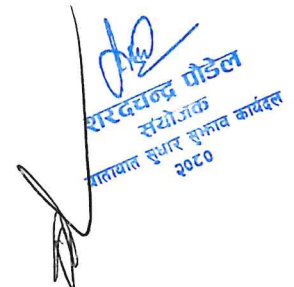 शरदचन्द्र पौडेल
संयोजक
यातायात सुधार सुझाव कार्यदल
२०८०